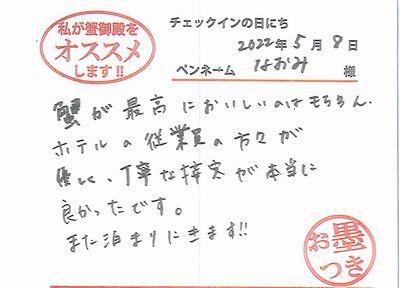 私が蟹御殿を
オススメ
します!!
チェックインの日にち
2022年5月8日
ペンネーム なおみ 様
蟹が最高においしいのはもちろん、
ホテルの従業員の方々が
優しく、丁寧な接客が本当に
良かったです。
また泊まりにきます!!
お墨
つき